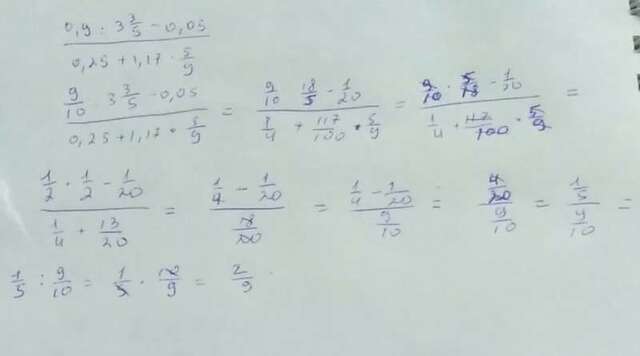 0,9 : 3 3/5 - 0,05
0,25 + 1,17 · 5/9
(9/10 3 3/5 - 0,05)/(0,25 + 1,17 · 5/9) = (9/10 18/5 - 1/20)/(1/4 + 117/100 · 5/9) = (9/10 · 5/18 - 1/20)/(1/4 + 117/100 · 5/9) =
(1/2 · 1/2 - 1/20)/(1/4 + 13/20) = (1/4 - 1/20)/(18/20) = (1/4 - 1/20)/(9/10) = (4/20)/(9/10) = (1/5)/(9/10) =
1/5 : 9/10 = 1/5 · 10/9 = 2/9